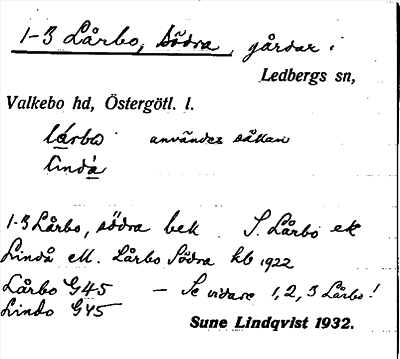 1-3 Lårbo, Södra, gårdar i
Ledbergs sn,
Valkebo hd, Östergötl. l.
lárbo användes sällan
lindá
1-3 Lårbo, södra bek S. Lårbo ek
Lindå ell. Lårbo Södra kb 1922
Lårbo G45 – Se vidare 1, 2, 3 Lårbo!
Lindo G45
Sune Lindqvist 1932.